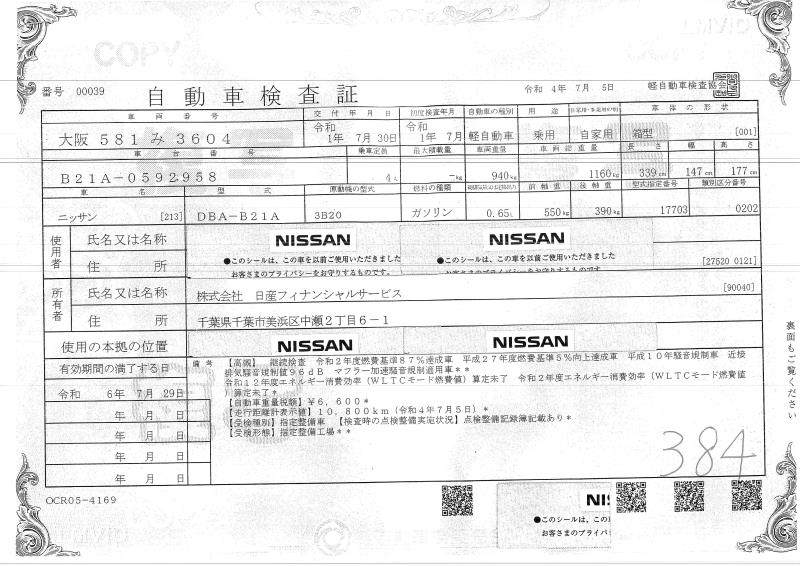 COPY
番号 00039
自動車検査証
令和 4年 7月 5日 軽自動車検査協会
車両番号 交付年月日 初度検査年月 自動車の種別 用途 自家用・事業用の別 車体の形状
大阪 581 み 3604 令和 1年 7月 30日 令和 1年 7月 軽自動車 乗用 自家用 箱型 [001]
車台番号 乗車定員 最大積載量 車両重量 車両総重量 長さ 幅 高さ
B21A-0592958 4人 -kg 940kg 1160kg 339cm 147cm 177cm
車名 型式 原動機の型式 燃料の種類 前軸重 後軸重 型式指定番号 類別区分番号
ニッサン [213] DBA-B21A 3B20 ガソリン 0.65L 550kg 390kg 17703 0202
使用者 氏名又は名称 NISSAN NISSAN
●このシールは、この車を以前ご使用いただきました ●このシールは、この車を以前ご使用いただきました
住所 お客さまのプライバシーをお守りするものです。 お客さまのプライバシーをお守りするものです [27520 0121]
所有者 氏名又は名称 株式会社 日産フィナンシャルサービス [90040]
住所 千葉県千葉市美浜区中瀬2丁目6-1
使用の本拠の位置 NISSAN NISSAN
有効期間の満了する日
令和 6年 7月 29日
年 月 日
年 月 日
年 月 日
年 月 日
備考 【高槻】 継続検査 令和2年度燃費基準87%達成車 平成27年度燃費基準5%向上達成車 平成10年騒音規制車 近接
排気騒音規制値96dB マフラー加速騒音規制適用車**
令和12年度エネルギー消費効率(WLTCモード燃費値)算定未了 令和2年度エネルギー消費効率(WLTCモード燃費値
)算定未了*
【自動車重量税額】¥6,600*
【走行距離計表示値】10,800km(令和4年7月5日)*
【受検種別】指定整備車 【検査時の点検整備実施状況】点検整備記録簿記載あり*
【受検形態】指定整備工場**
裏面もご覧ください
384
OCR05-4169
NIS
●このシールは、この
お客さまのプライバ